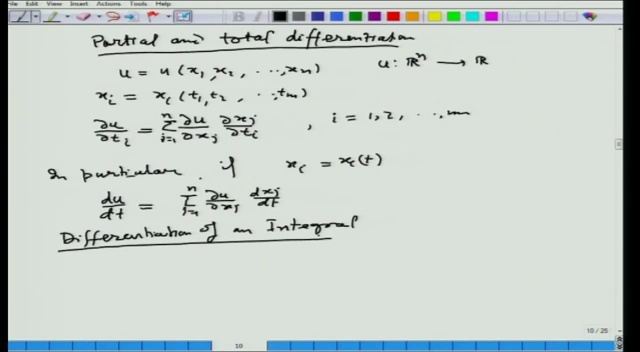 File Edit View Insert Actions Tools Help
B I
Partial and total differentiation
u = u(x₁, x₂, ..., xₙ) u: ℝⁿ → ℝ
xᵢ = xᵢ(t₁, t₂, ..., tₘ)
∂u/∂tᵢ = Σⁿⱼ₌₁ ∂u/∂xⱼ ∂xⱼ/∂tᵢ , i = 1, 2, ..., m
In particular, if xᵢ = xᵢ(t)
du/dt = Σⁿⱼ₌₁ ∂u/∂xⱼ dxⱼ/dt
Differentiation of an Integral
10 / 25
10